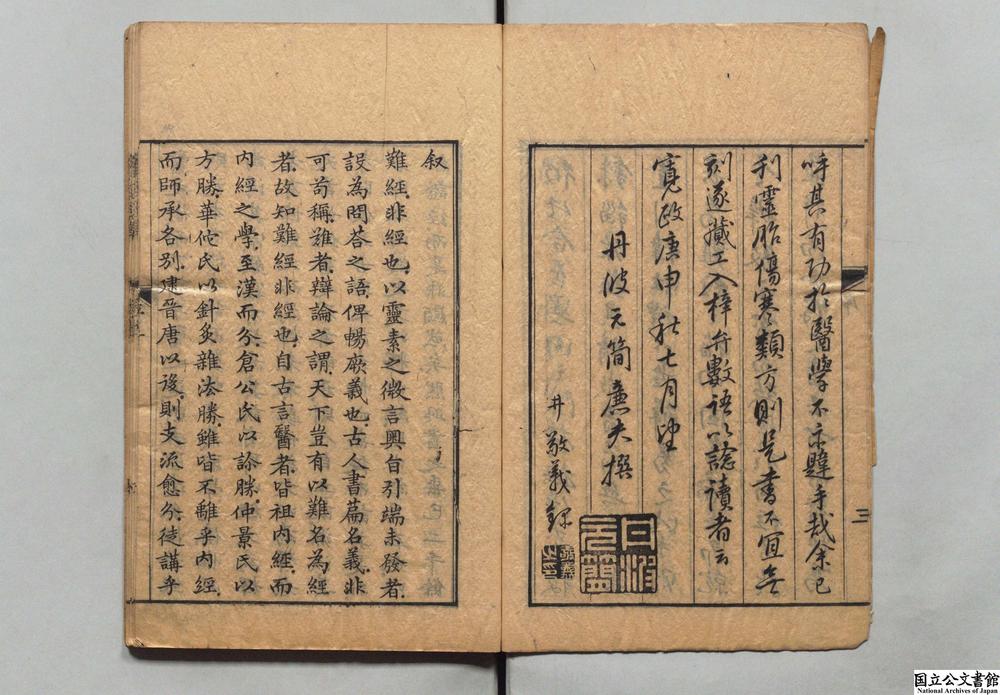 呼其有功於醫學不亦韙乎哉余已
刊靈胎傷寒類方則是書不宜無
刻遂藏工入梓弁數語以諗讀者云
寬政庚申秋七月望
丹波元簡廉夫撰
井敬義録
三
叙
難經非經也以靈素之微言奧旨引端未發者
設為問荅之語俾暢厥義也古人書篇名義非
可苟稱難者辯論之謂天下豈有以難名為經
者故知難經非經也自古言醫者皆祖内經而
内經之學至漢而分倉公氏以診勝仲景氏以
方勝華佗氏以針灸雜法勝雖皆不離乎内經
而師承各別逮晉唐以後則支流愈分徒講乎
国立公文書館
National Archives of Japan